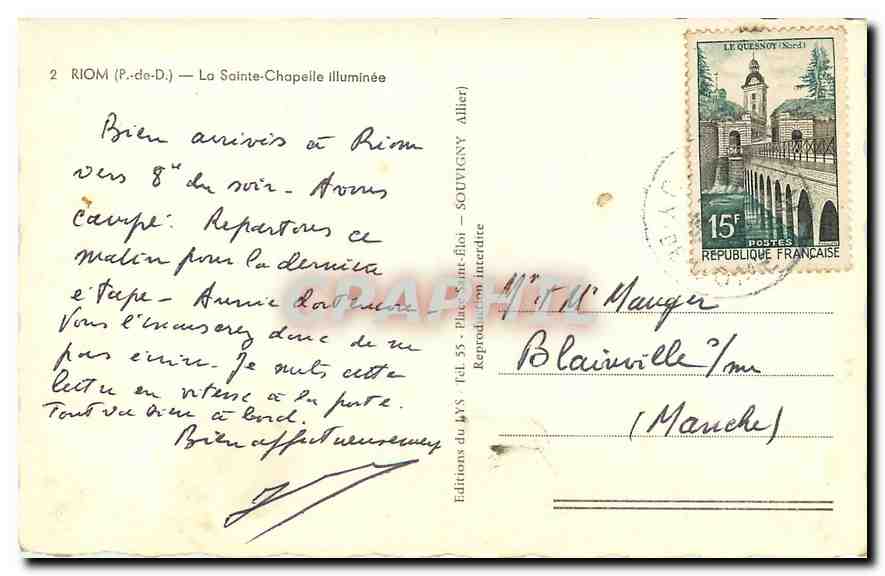 2 RIOM (P.-de-D.) — La Sainte-Chapelle illuminée
Bien arrivés à Riom
vers 8h du soir - Avons
campé. Repartons ce
matin pour la dernière
étape - Annie
Vous l'excuserez donc de ne
pas écrire. Je mets cette
lettre en vitesse à la poste.
Tout va bien à bord.
Bien affectueusement
Editions du LYS - Tél. 55 - Place Saint-Éloi - SOUVIGNY (Allier)
Reproduction interdite
LE QUESNOY (Nord)
15F
POSTES
RÉPUBLIQUE FRANÇAISE
Mr et Me Mauger
Blainville s/mer
(Manche)
CPAPHIL